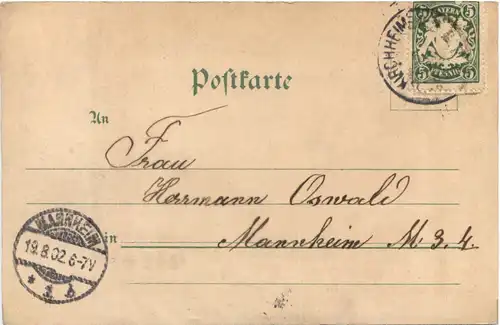 KIRCHHEIM
BAYERN
5 5
5 PFENNIG 5
Postkarte
An
Frau
Hermann Oswald
in Mannheim M. 3. 4.
MANNHEIM
19.8.02.6-7V
* 1 b